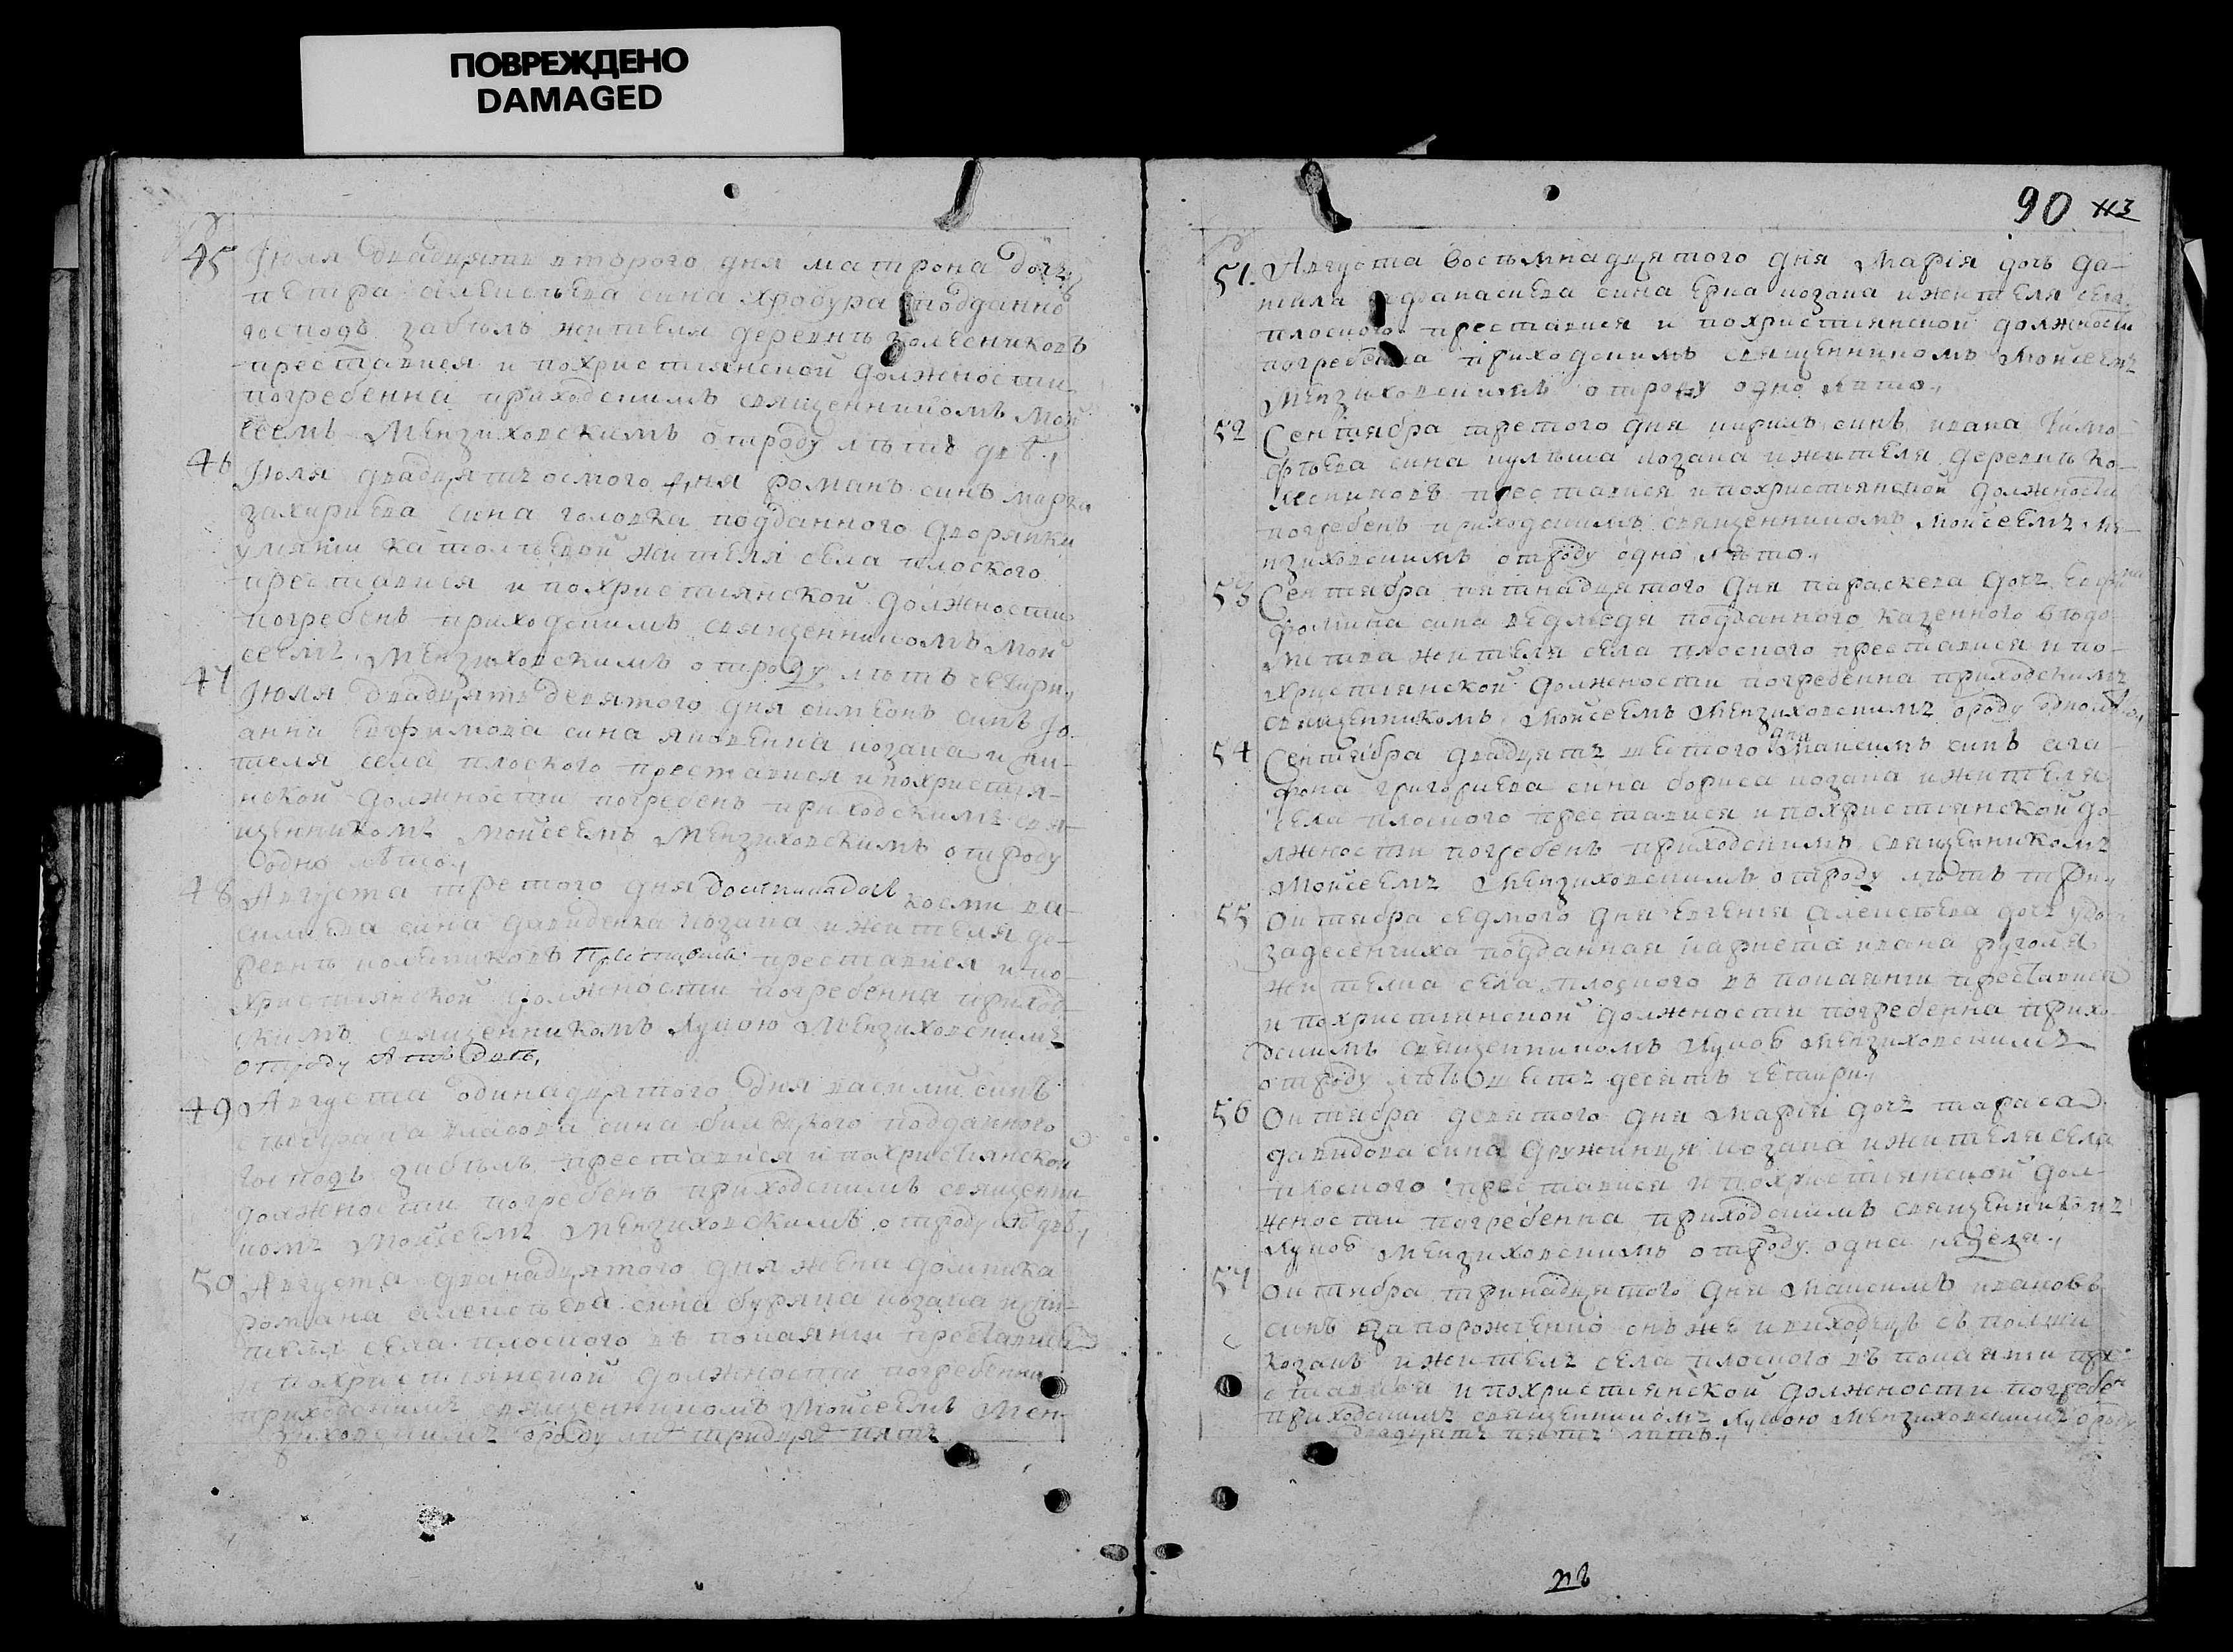 ПОВРЕЖДЕНО
DAMAGED
45 Июля двадцять второго дня матрона дочъ
петра алексѣева сина хробура подданно
господъ забѣлъ жителя деревнѣ колесниковъ
преставися и похристиянской должности
погребенна приходскимъ священникомъ Мой
сеемъ Мензиховскимъ отроду лѣтъ двѣ,
46 Июля двадцять осмого дня романъ синъ марка
захариева сина головка подданного дворянки
жителя села плоского
преставися и похристиянской должности
погребенъ приходскимъ священникомъ Мой
сеемъ Мензиховскимъ отроду лѣтъ четири,
47 Июля двадцять девятого дня симеонъ синъ Іо-
анна евфимова сина яковенка козака и жи-
теля села плоского преставися и похристия-
нской должности погребенъ приходскимъ свя-
щенникомъ Мойсеемъ Мензиховскимъ отроду
одно лѣто,
48 Августа третого дня космы ва-
силиева сина давиденка козака и жителя де-
ревнѣ колесниковъ преставися и по-
християнской должности погребенна приход-
скимъ священникомъ Лукою Мензиховскимъ
отроду
49 Августа одинадцятого дня василий синъ
власова сина билецкого подданного
господъ забѣлъ преставися и похристиянской
должности погребенъ приходскимъ священни-
комъ Мойсеемъ Мензиховскимъ отроду лѣтъ двѣ,
50 Августа дванадцятого дня жена домника
романа алексѣева сина буряка козака и жи-
теля села плоского въ покаянии преставися
и похристиянской должности погребенна
приходскимъ священникомъ Мойсеемъ Мен-
зиховскимъ ороду лѣтъ тридцять пять
90 113
51. Августа восѣмнадцятого дня Марія дочъ да-
нила афанасиева сина козака и жителя села
плоского преставися и похристиянской должности
погребенна приходскимъ священникомъ Мойсеемъ
Мензиховскимъ отроду одно лѣто,
52 Сентября третого дня кирилъ синъ ивана тимо-
фѣева сина кулѣша козака и жителя деревнѣ ко-
лесниковъ преставися и похристиянской должности
погребенъ приходскимъ священникомъ Мойсеемъ Ме-
нзиховскимъ отроду одно лѣто,
53 Сентября пятинадцятого дня параскева дочъ
фомина сина ведмедя подданного казенного вѣдо-
мства жителя села плоского преставися и по-
християнской должности погребенна приходскимъ
священникомъ Мойсеемъ Мензиховскимъ ороду одно лѣто,
54 Сентября двадцять шестого дня Максимъ синъ ага-
фона григориева сина бориса козака и жителя
села плоского преставися и похристиянской до-
лжности погребенъ приходскимъ священникомъ
Мойсеемъ Мензиховскимъ отроду лѣтъ три,
55 Октября седмого дня евгения алексѣева дочъ
задесенчиха подданная ивана
жителка села плоского въ покаянии преставися
и похристиянской должности погребенна прихо-
дскимъ священникомъ Лукою Мензиховскимъ
отроду лѣтъ шестъ десятъ четири,
56 Октября девятого дня Марія дочъ тараса
давидова сина дружинця козака и жителя села
плоского преставися и похристиянской дол-
жности погребенна приходскимъ священникомъ
Лукою Мензиховскимъ отроду одна неделя,
57 Октября тринадцятого дня Максимъ ивановъ
синъ запорожченко онъ же и виходецъ съ полши
козакъ и житель села плоского въ покаянии пре-
ставися и похристиянской должности погребен
приходскимъ священникомъ Лукою Мензиховскимъ ороду
двадцять пять лѣтъ,